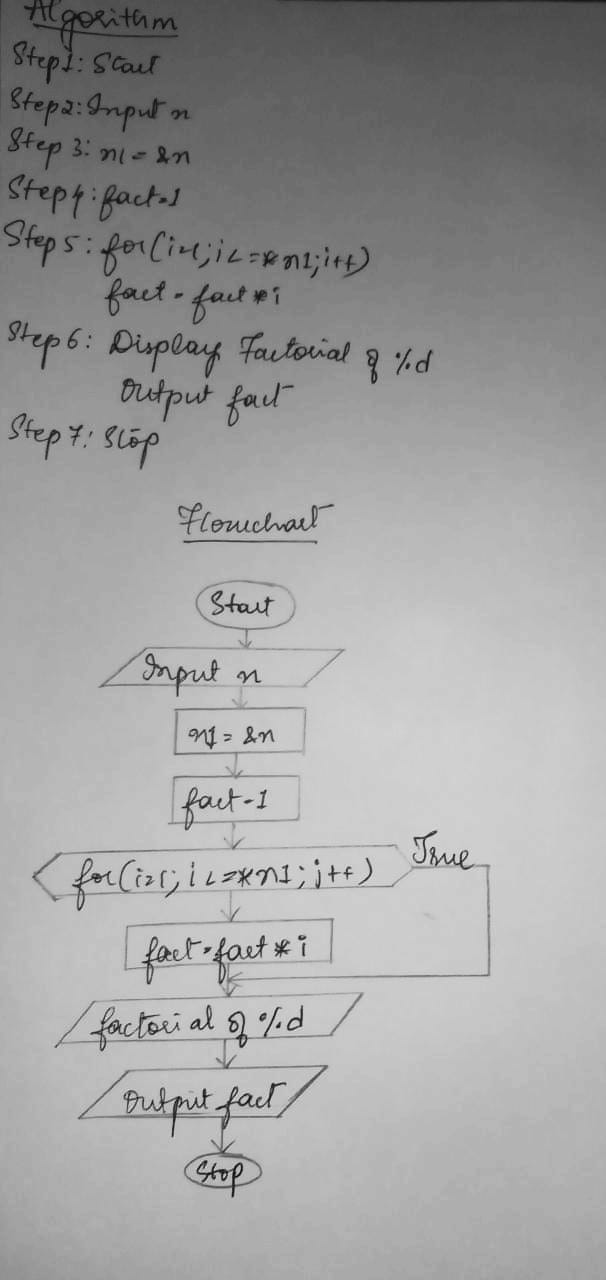 Algorithm
Step1: Start
Step2: Input n
Step 3: n1 = &n
Step4: fact=1
Step5: for(i=1;i<=*n1;i++)
fact = fact*i
Step6: Display Factorial of %d
Output fact
Step 7: Stop
Flowchart
Start
Input n
n1 = &n
fact=1
for(i=1; i<=*n1; i++)
True
fact=fact*i
factorial of %d
Output fact
Stop